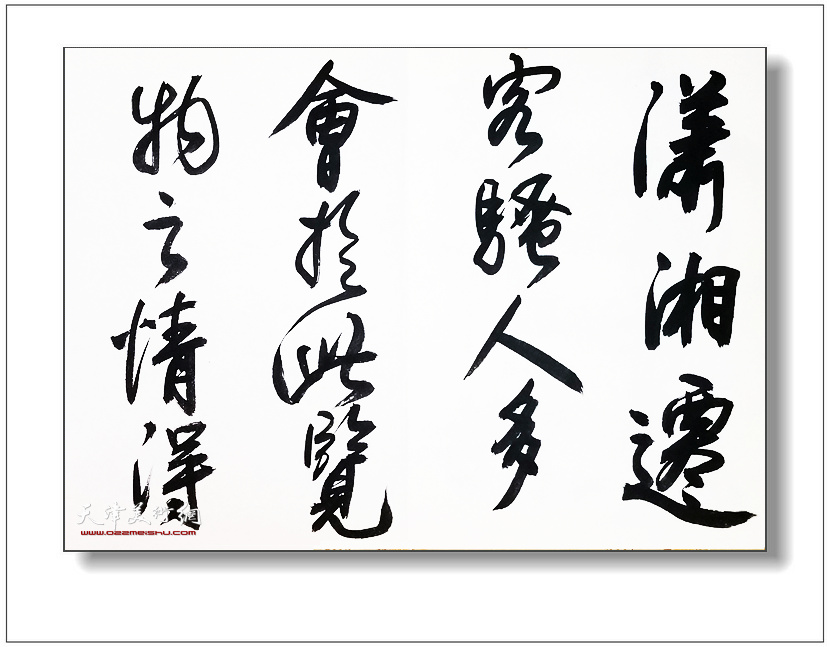 瀟湘遷
客騷人多
會於此覽
物之情得
天津美術網
www.022meishu.com